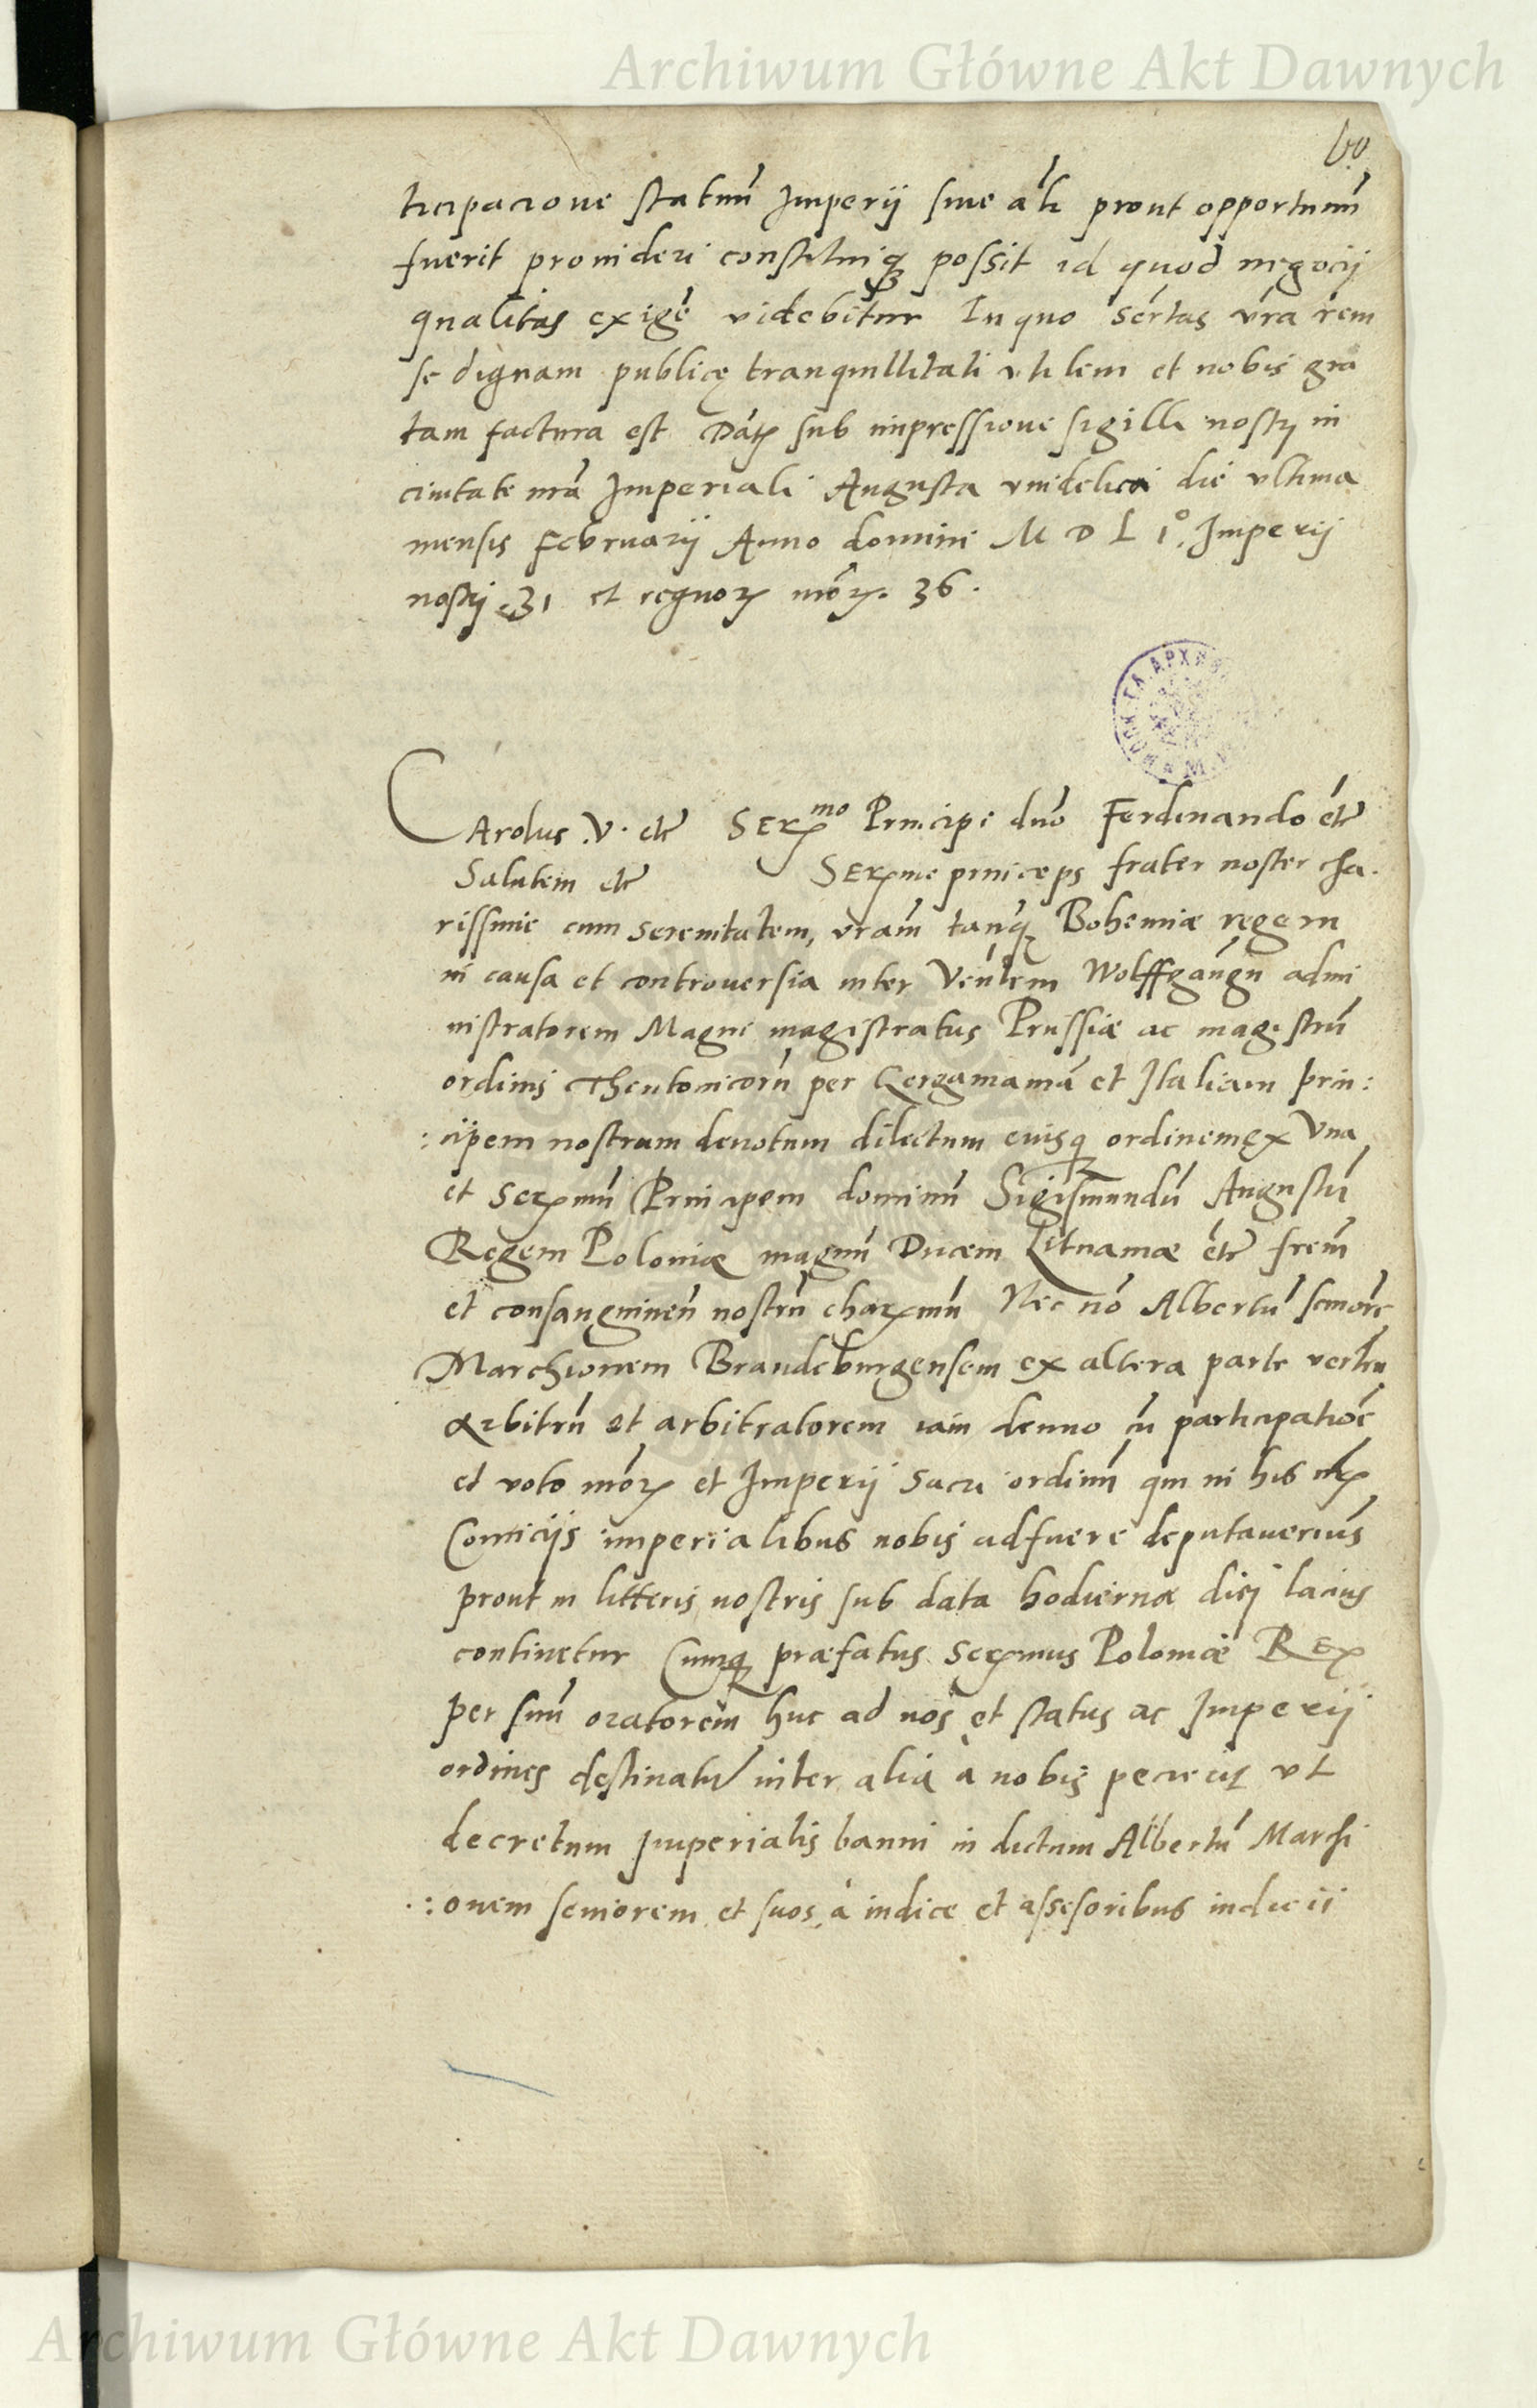 Archiwum Główne Akt Dawnych
60
ticipacione statuum Imperij siue ałi prout opportunū
fuerit prouideri constituiq3 possit id quod negocij
qualitas exigē videbitur In quo Sertas vr̄a rem
se dignam publicę tranquillitati vtilem et nobis gra
tam factura est Dat sub impressione sigilli nostrj in
ciuitate nr̄a Imperiali Augusta vindelicoȓ die vltima
mensis Februarij Anno domini M D L 1º. Imperij
nostrj 31 et regnoꝝ nr̄oꝝ. 36.
CArolus .V. etc̄ SERmo Principi dn̄o Ferdinando etc̄
Salutem etc̄ SERme princeps frater noster cha.
rissime cum serenitatem, vram̄ tanq̄3 Bohemiæ regem
in causa et controuersia inter Ven̄lem Wolffgāngū admi
nistratorem Magni magistratus Prussiæ ac magistrū
ordinis Theutonicorū per Gergamaniā et Italiam prin:
:cipem nostrum deuotum dilectum eiusq3 ordinem ex vna
et Serꝑmū Principem dominū Sigismundū Augustū
Regem Poloniæ magnū Ducem Lituaniæ etc̄ frem̄
et consanguineū nostrū charꝑmū Nec nō Albertū seniorē
Marchionem Brandeburgensem ex altera parte verten
Arbitrū et arbitratorem iam denuo cū participatiōē
et voto nr̄oꝝ et Imperij Sacri ordinū qui in his
Comicijs imperialibus nobis adfuere deputauerim̄s
prout in litteris nostris sub data hodiernæ diej lacius
continetur Cumq3 præfatus Serꝑmus Poloniæ REx
per suū oratorem huc ad nos et status ac Imperij
ordines destinatū inter alia à nobis pecierit vt
decretum Imperialis banni in dictum Albertū Marchi
:onem seniorem et suos à iudice et assesoribus iudicii
Archiwum Główne Akt Dawnych